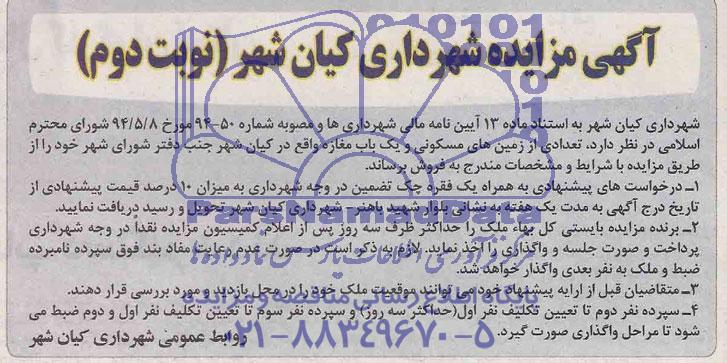 آگهی مزایده شهرداری کیان شهر (نوبت دوم)
شهرداری کیان شهر به استناد ماده ۱۳ آیین نامه مالی شهرداری ها و مصوبه شماره ۵۰-۹۴ مورخ ۹۴/۵/۸ شورای محترم
اسلامی در نظر دارد، تعدادی از زمین های مسکونی و یک باب مغازه واقع در کیان شهر جنب دفتر شورای شهر خود را از
طریق مزایده با شرایط و مشخصات مندرج به فروش برساند.
۱ـ درخواست های پیشنهادی به همراه یک فقره چک تضمین در وجه شهرداری به میزان ۱۰ درصد قیمت پیشنهادی از
تاریخ درج آگهی به مدت یک هفته به نشانی بلوار شهید باهنر - شهرداری کیان شهر تحویل و رسید دریافت نمایید.
۲ـ برنده مزایده بایستی کل بهاء ملک را حداکثر ظرف سه روز پس از اعلام کمیسیون مزایده نقداً در وجه شهرداری
پرداخت و صورت جلسه و واگذاری را اخذ نماید. لازم به ذکر است در صورت عدم رعایت مفاد بند فوق سپرده نامبرده
ضبط و ملک به نفر بعدی واگذار خواهد شد.
۳ـ متقاضیان قبل از ارایه پیشنهاد خود می توانند موقعیت ملک خود را در محل بازدید و مورد بررسی قرار دهند.
۴ـ سپرده نفر دوم تا تعیین تکلیف نفر اول(حداکثر سه روز) و سپرده نفر سوم تا تعیین تکلیف نفر اول و دوم ضبط می
شود تا مراحل واگذاری صورت گیرد.
روابط عمومی شهرداری کیان شهر
ParsNamadData
پایگاه اطلاع رسانی مناقصه و مزایده
۰۲۱-۸۸۳۴۹۶۷۰-۵